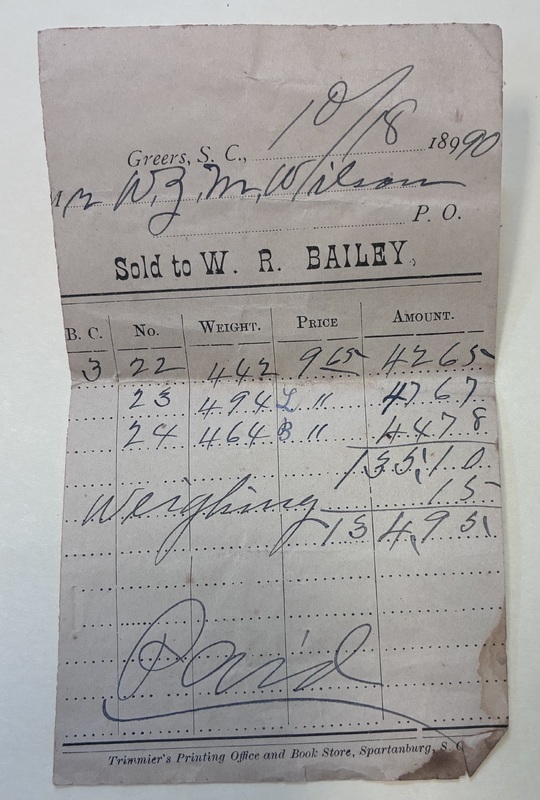 Greers, S. C., 10/18 18990
Mr W. J. M. Wilson
P. O.
Sold to W. R. BAILEY.
B. C. No. WEIGHT. PRICE AMOUNT.
3 22 442 9 65 42 65
23 494 L " 47 67
24 464 B " 44 78
135,10
Weighing 15
134,95
Paid
Trimmier's Printing Office and Book Store, Spartanburg, S. C